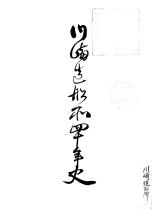 川崎造船所四十年史
川崎造船所